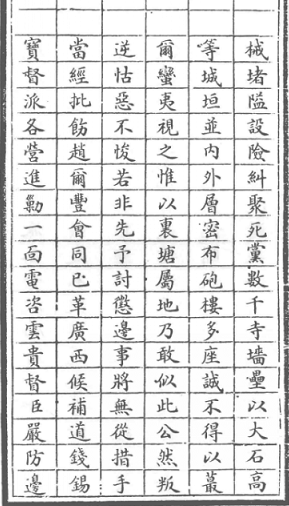 械堵隘設險糾聚死黨數千寺墻壘以大石高
等城垣並內外層密布砲樓多座誠不得以蕞
爾蠻夷視之惟以裏塘屬地乃敢似此公然叛
逆怙惡不悛若非先予討懲邊事將無從措手
當經批飭趙爾豐會同已革廣西候補道錢錫
寶督派各營進勦一面電咨雲貴督臣嚴防邊